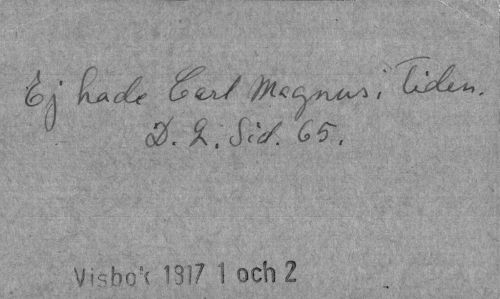 Ej hade Carl Magnus i tiden.
D. 2. Sid. 65.
Visbok 1917 1 och 2